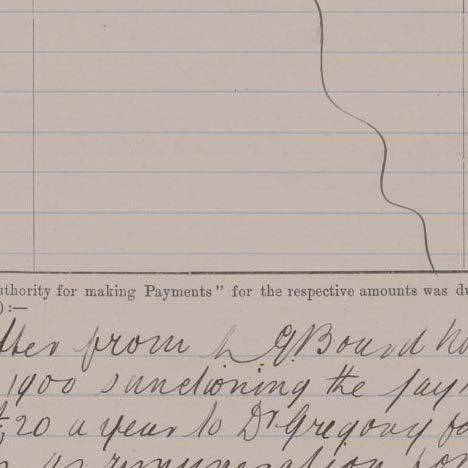 uthority for making Payments" for the respective amounts was du
):—
tter from L G Board No
1900 sanctioning the paym
£20 a year to Dr Gregory fo
as remuneration for